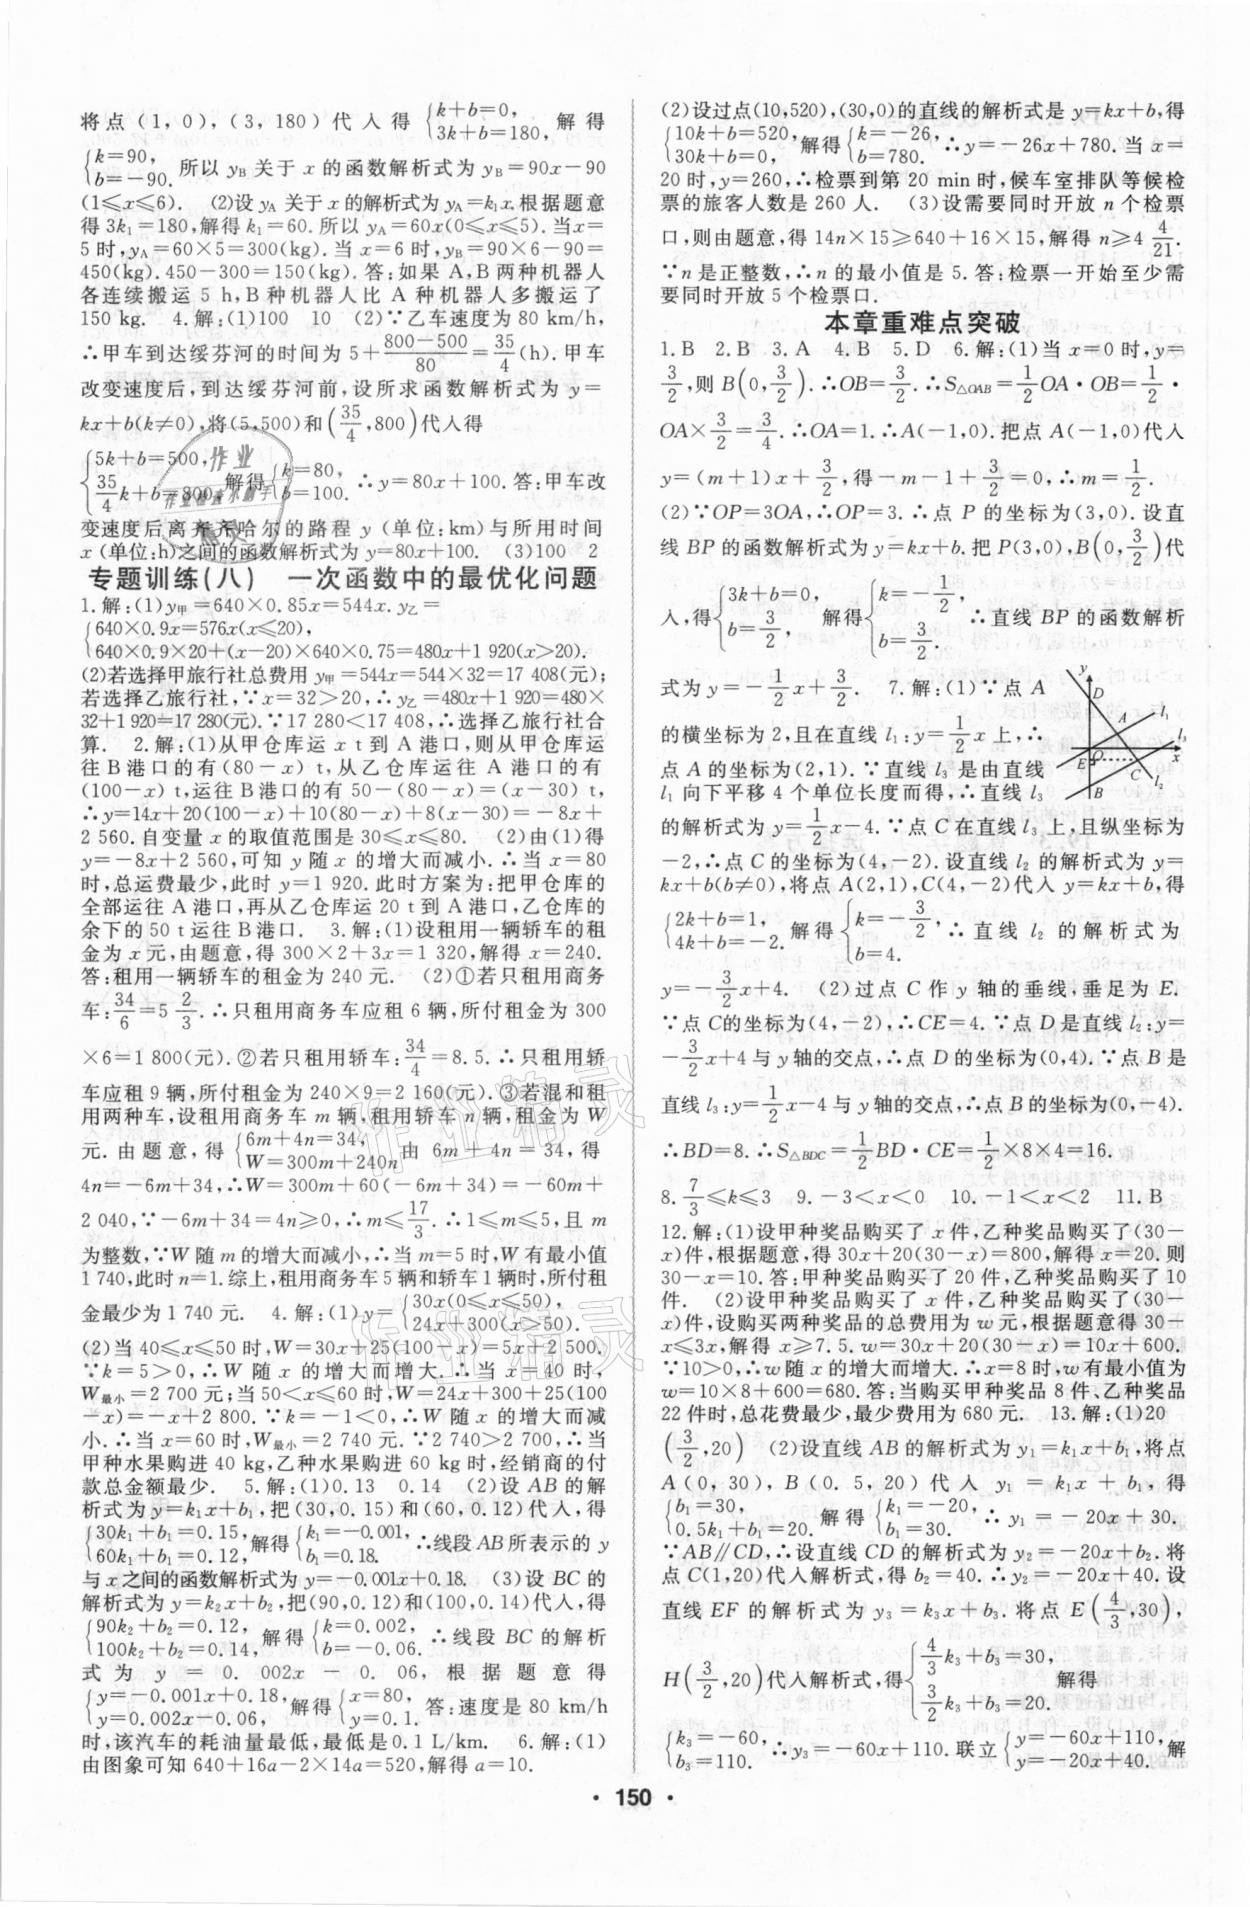 将点(1,0),(3,180)代入得{k+b=0, 3k+b=180,解得
{k=90, b=-90. 所以 yB 关于 x 的函数解析式为 yB=90x-90
(1≤x≤6). (2)设 yA 关于 x 的解析式为 yA=k₁x.根据题意
得 3k₁=180,解得 k₁=60.所以 yA=60x(0≤x≤5).当 x=
5 时,yA=60×5=300(kg).当 x=6 时,yB=90×6-90=
450(kg).450-300=150(kg).答:如果 A,B 两种机器人
各连续搬运 5 h,B 种机器人比 A 种机器人多搬运了
150 kg. 4.解:(1)100 10 (2)∵乙车速度为 80 km/h,
∴甲车到达绥芬河的时间为 5+(800-500)/80=35/4(h).甲车
改变速度后,到达绥芬河前,设所求函数解析式为 y=
kx+b(k≠0),将(5,500)和(35/4,800)代入得
{5k+b=500, 35/4k+b=800,解得{k=80, b=100. ∴y=80x+100.答:甲车改
变速度后离齐齐哈尔的路程 y(单位:km)与所用时间
x(单位:h)之间的函数解析式为 y=80x+100. (3)100 2
专题训练(八) 一次函数中的最优化问题
1.解:(1)y甲=640×0.85x=544x.y乙=
{640×0.9x=576x(x≤20), 640×0.9×20+(x-20)×640×0.75=480x+1 920(x>20).
(2)若选择甲旅行社总费用 y甲=544x=544×32=17 408(元);
若选择乙旅行社,∵x=32>20,∴y乙=480x+1 920=480×
32+1 920=17 280(元).∵17 280<17 408,∴选择乙旅行社合
算. 2.解:(1)从甲仓库运 x t 到 A 港口,则从甲仓库运
往 B 港口的有(80-x) t,从乙仓库运往 A 港口的有
(100-x) t,运往 B 港口的有 50-(80-x)=(x-30) t,
∴y=14x+20(100-x)+10(80-x)+8(x-30)=-8x+
2 560.自变量 x 的取值范围是 30≤x≤80. (2)由(1)得
y=-8x+2 560,可知 y 随 x 的增大而减小.当 x=80
时,总运费最少,此时 y=1 920.此时方案为:把甲仓库的
全部运往 A 港口,再从乙仓库运 20 t 到 A 港口,乙仓库的
余下的 50 t 运往 B 港口. 3.解:(1)设租用一辆轿车的租
金为 x 元,由题意,得 300×2+3x=1 320,解得 x=240.
答:租用一辆轿车的租金为 240 元. (2)①若只租用商务
车:34/6=5 2/3,∴只租用商务车应租 6 辆,所付租金为 300
×6=1 800(元).②若只租用轿车:34/4=8.5,∴只租用轿
车应租 9 辆,所付租金为 240×9=2 160(元).③若混和租
用两种车,设租用商务车 m 辆,租用轿车 n 辆,租金为 W
元.由题意,得{6m+4n=34, W=300m+240n由 6m+4n=34,得
4n=-6m+34,∴W=300m+60(-6m+34)=-60m+
2 040,∵-6m+34=4n≥0,∴m≤17/3.∴1≤m≤5,且 m
为整数,∵W 随 m 的增大而减小,∴当 m=5 时,W 有最小值
1 740,此时 n=1.综上,租用商务车 5 辆和轿车 1 辆时,所付租
金最少为 1 740 元. 4.解:(1)y={30x(0≤x≤50), 24x+300(x>50).
(2)当 40≤x≤50 时,W=30x+25(100-x)=5x+2 500.
∵k=5>0,∴W 随 x 的增大而增大.∴当 x=40 时,
W最小=2 700 元;当 50<x≤60 时,W=24x+300+25(100
-x)=-x+2 800.∵k=-1<0,∴W 随 x 的增大而减
小.∴当 x=60 时,W最小=2 740 元.∵2 740>2 700,∴当
甲种水果购进 40 kg,乙种水果购进 60 kg 时,经销商的付
款总金额最少. 5.解:(1)0.13 0.14 (2)设 AB 的解
析式为 y=k₁x+b₁,把(30,0.15)和(60,0.12)代入,得
{30k₁+b₁=0.15, 60k₁+b₁=0.12,解得{k₁=-0.001, b₁=0.18. ∴线段 AB 所表示的 y
与 x 之间的函数解析式为 y=-0.001x+0.18. (3)设 BC 的
解析式为 y=k₂x+b₂,把(90,0.12)和(100,0.14)代入,得
{90k₂+b₂=0.12, 100k₂+b₂=0.14,解得{k=0.002, b=-0.06. ∴线段 BC 的解析
式为 y=0.002x-0.06,根据题意得
{y=-0.001x+0.18, y=0.002x-0.06,解得{x=80, y=0.1. 答:速度是 80 km/h
时,该汽车的耗油量最低,最低是 0.1 L/km. 6.解:(1)
由图象可知 640+16a-2×14a=520,解得 a=10.
(2)设过点(10,520),(30,0)的直线的解析式是 y=kx+b,得
{10k+b=520, 30k+b=0,解得{k=-26, b=780. ∴y=-26x+780.当 x=
20 时,y=260,∴检票到第 20 min 时,候车室排队等候检
票的旅客人数是 260 人. (3)设需要同时开放 n 个检票
口,则由题意,得 14n×15≥640+16×15,解得 n≥4 4/21.
∵n 是正整数,∴n 的最小值是 5.答:检票一开始至少需
要同时开放 5 个检票口.
本章重难点突破
1.B 2.B 3.A 4.B 5.D 6.解:(1)当 x=0 时,y=
3/2,则 B(0,3/2).∴OB=3/2.∴S△OAB=1/2OA·OB=1/2·
OA×3/2=3/4.∴OA=1.∴A(-1,0).把点 A(-1,0)代入
y=(m+1)x+3/2,得-m-1+3/2=0,∴m=1/2.
(2)∵OP=3OA,∴OP=3.∴点 P 的坐标为(3,0).设直
线 BP 的函数解析式为 y=kx+b.把 P(3,0),B(0,3/2)代
入,得{3k+b=0, b=3/2, 解得{k=-1/2, b=3/2. ∴直线 BP 的函数解析
式为 y=-1/2x+3/2. 7.解:(1)∵点 A
的横坐标为 2,且在直线 l₁:y=1/2x 上,∴
点 A 的坐标为(2,1).∵直线 l₃是由直线
l₁向下平移 4 个单位长度而得,∴直线 l₃
y
D
A
l₁
l₃
E
O
x
C
B
l₂
的解析式为 y=1/2x-4.∵点 C 在直线 l₃上,且纵坐标为
-2,∴点 C 的坐标为(4,-2).设直线 l₂的解析式为 y=
kx+b(b≠0),将点 A(2,1),C(4,-2)代入 y=kx+b,得
{2k+b=1, 4k+b=-2. 解得{k=-3/2, b=4. ∴直线 l₂的解析式为
y=-3/2x+4. (2)过点 C 作 y 轴的垂线,垂足为 E.
∵点 C的坐标为(4,-2),∴CE=4.∵点 D 是直线 l₂:y=
-3/2x+4 与 y 轴的交点,∴点 D 的坐标为(0,4).∵点 B 是
直线 l₃:y=1/2x-4 与 y 轴的交点,∴点 B 的坐标为(0,-4).
∴BD=8.∴S△BDC=1/2BD·CE=1/2×8×4=16.
8.7/3≤k≤3 9.-3<x<0 10.-1<x<2 11.B
12.解:(1)设甲种奖品购买了 x 件,乙种奖品购买了(30-
x)件,根据题意,得 30x+20(30-x)=800,解得 x=20.则
30-x=10.答:甲种奖品购买了 20 件,乙种奖品购买了 10
件. (2)设甲种奖品购买了 x 件,乙种奖品购买了(30-
x)件,设购买两种奖品的总费用为 w 元,根据题意得 30-
x≤3x,解得 x≥7.5. w=30x+20(30-x)=10x+600.
∵10>0,∴w 随 x 的增大而增大.∴x=8 时,w 有最小值为
w=10×8+600=680.答:当购买甲种奖品 8 件、乙种奖品
22 件时,总花费最少,最少费用为 680 元. 13.解:(1)20
(3/2,20) (2)设直线 AB 的解析式为 y₁=k₁x+b₁,将点
A(0,30),B(0.5,20)代入 y₁=k₁x+b₁,得
{b₁=30, 0.5k₁+b₁=20. 解得{k₁=-20, b₁=30. ∴y₁=-20x+30.
∵AB∥CD,∴设直线 CD 的解析式为 y₂=-20x+b₂.将
点 C(1,20)代入解析式,得 b₂=40.∴y₂=-20x+40.设
直线 EF 的解析式为 y₃=k₃x+b₃.将点 E(4/3,30),
H(3/2,20)代入解析式,得{4/3k₃+b₃=30, 3/2k₃+b₃=20. 解得
{k₃=-60, b₃=110. ∴y₃=-60x+110.联立{y=-60x+110, y=-20x+40. 解
· 150 ·
作业精灵
作业精灵